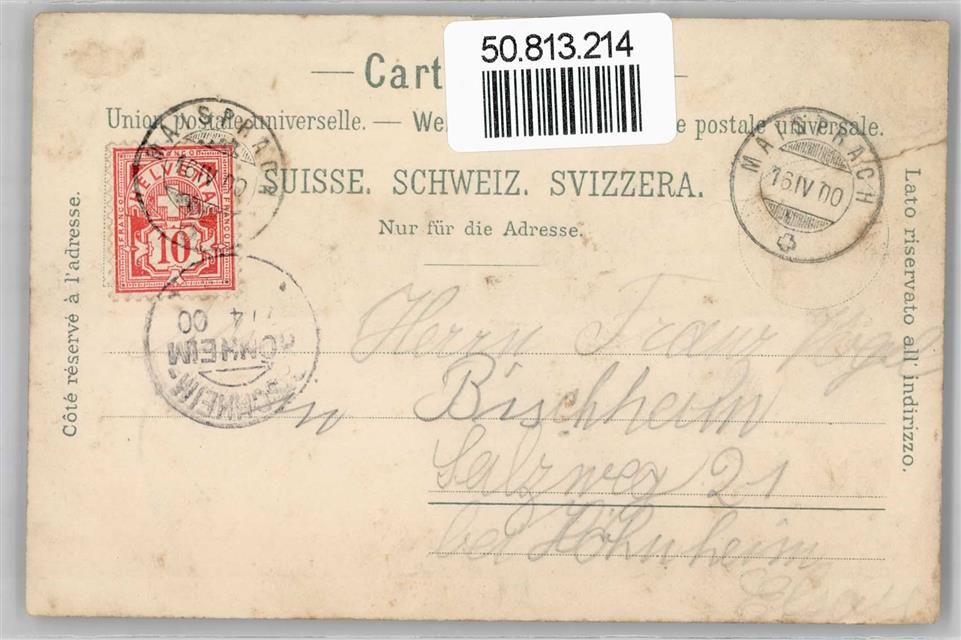 50.813.214
— Cart
Union postale universelle. — We postale universale.
SUISSE. SCHWEIZ. SVIZZERA.
Nur für die Adresse.
Côté réservé à l'adresse.
Lato riservato all' indirizzo.
FRANCO
HELVETIA
FRANCO FRANCO
10
MAISPRACH
MAISPRACH
16 IV 00
4 00
HÖNHEIM
Herrn Franz
in Bischheim
Salzweg 21
bei Höhnheim
Elsass